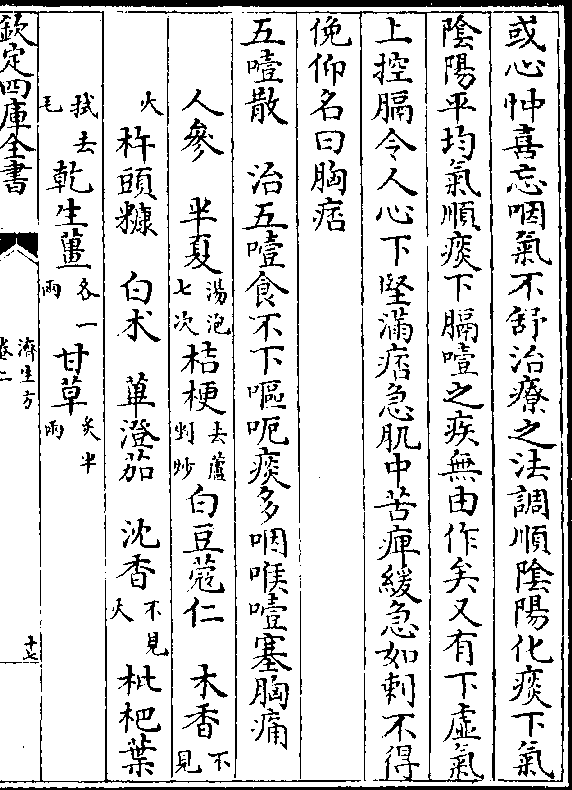 或心忡喜忘咽氣不舒治療之法調順陰陽化痰下氣
陰陽平均氣順痰下膈噎之疾無由作矣又有下虛氣
上控膈令人心下堅滿痞急肌中苦痺緩急如刺不得
俛仰名曰胸痞
五噎散 治五噎食不下嘔呃痰多咽喉噎塞胸痛
人參 半夏湯泡七次 桔梗去蘆剉炒 白豆蔻仁 木香不見
火 杵頭糠 白术 蓽澄茄 沈香不見火 枇杷葉
拭去毛 乾生薑各一兩 甘草炙半兩
欽定四庫全書 濟生方 卷二 十七